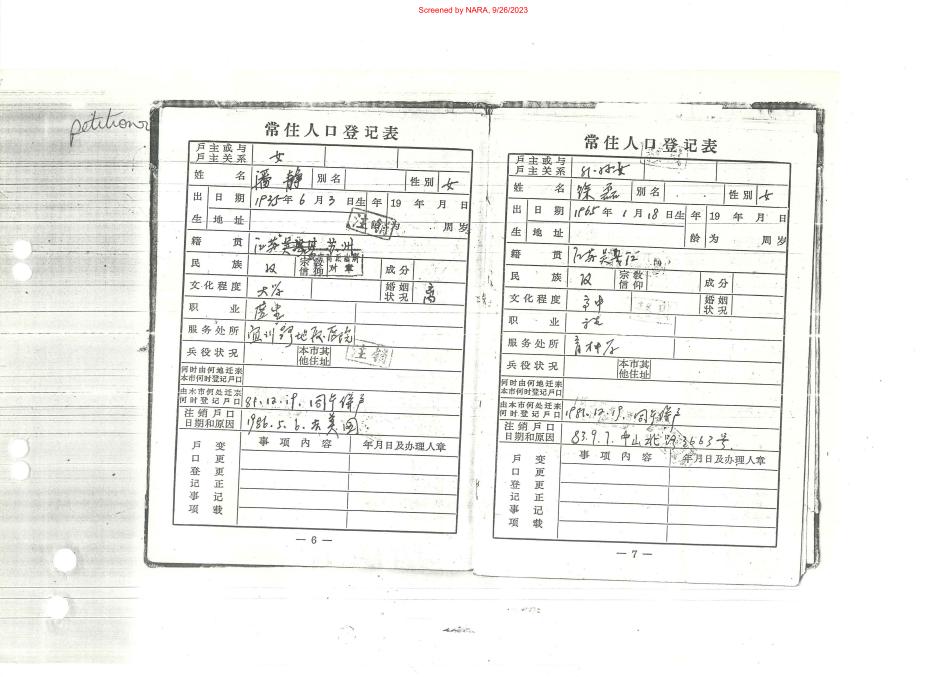 Screened by NARA, 9/26/2023
petitioner
常住人口登记表
户主或与户主关系 女
姓名 潘静 别名 性别 女
出生 日期 1935年6月3日生 年龄 19 年 月 日
地址 为 周岁
注销
籍贯 江苏 苏州
民族 汉 宗教信仰 成分
文化程度 大学 婚姻状况 离
职业
服务处所
兵役状况 本市其他住址 注销
何时由何地迁来本市何时登记户口
由本市何处迁来何时登记户口 81.12.19.
注销户口日期和原因 1986.5.6. 去美国
户口登记事项 变更更正记载 事项内容 年月日及办理人章
— 6 —
常住人口登记表
户主或与户主关系
姓名 徐磊 别名 性别 女
出生 日期 1965年1月18日生 年龄 19 年 月 日
地址 为 周岁
籍贯 江苏
民族 汉 宗教信仰 成分
文化程度 高中 婚姻状况
职业
服务处所
兵役状况 本市其他住址
何时由何地迁来本市何时登记户口
由本市何处迁来何时登记户口 1981.12.19.
注销户口日期和原因 83.9.7. 中山北路3663号
户口登记事项 变更更正记载 事项内容 年月日及办理人章
— 7 —